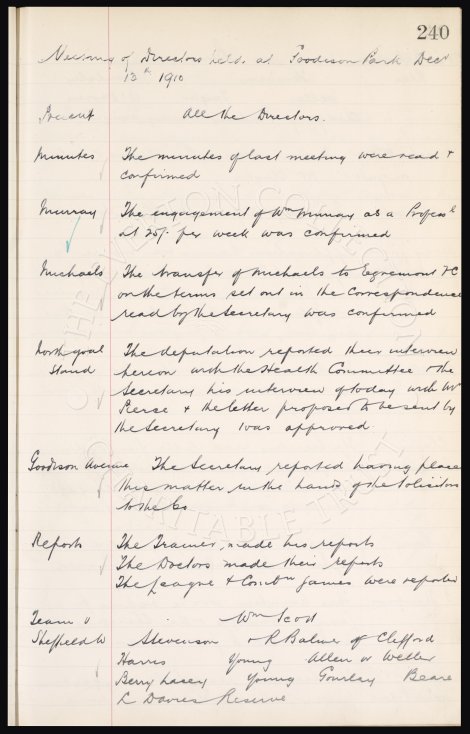 240
Meeting of Directors held at Goodison Park Decr
13th 1910
Present All the Directors.
Minutes The minutes of last meeting were read &
confirmed
Murray The engagement of Wm Murray as a Profesl
at 25/- per week was confirmed
Michaels The transfer of Michaels to Egremont FC
on the terms set out in the Correspondence
read by the Secretary was confirmed
North goal The deputation reported their interview
Stand hereon with the Health Committee & the
Secretary his interview of today with Mr
& the letter proposed to be sent by
the Secretary was approved
Goodison Avenue The Secretary reported having place
this matter in the hands of the Solicitors
to the Co.
Reports The Trainer made his reports
The Doctors made their reports
The League & Combtn games were reported
Team v Wm Scott
Sheffield W Stevenson & R Balmer of Clifford
Harris Young Allen or Weller
Berry Lacey Young Gourlay Beare
L Davies Reserve
THE EVERTON COLLECTION
CHARITABLE TRUST